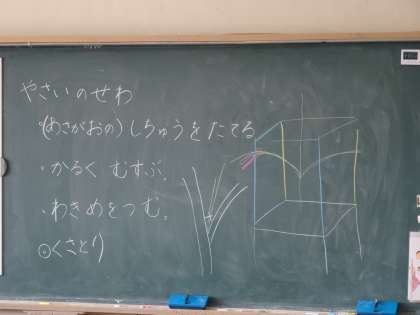 やさいのせわ
・(あさがおの)しちゅうをたてる
・かるく むすぶ。
・わきめをつむ。
⊙くさとり